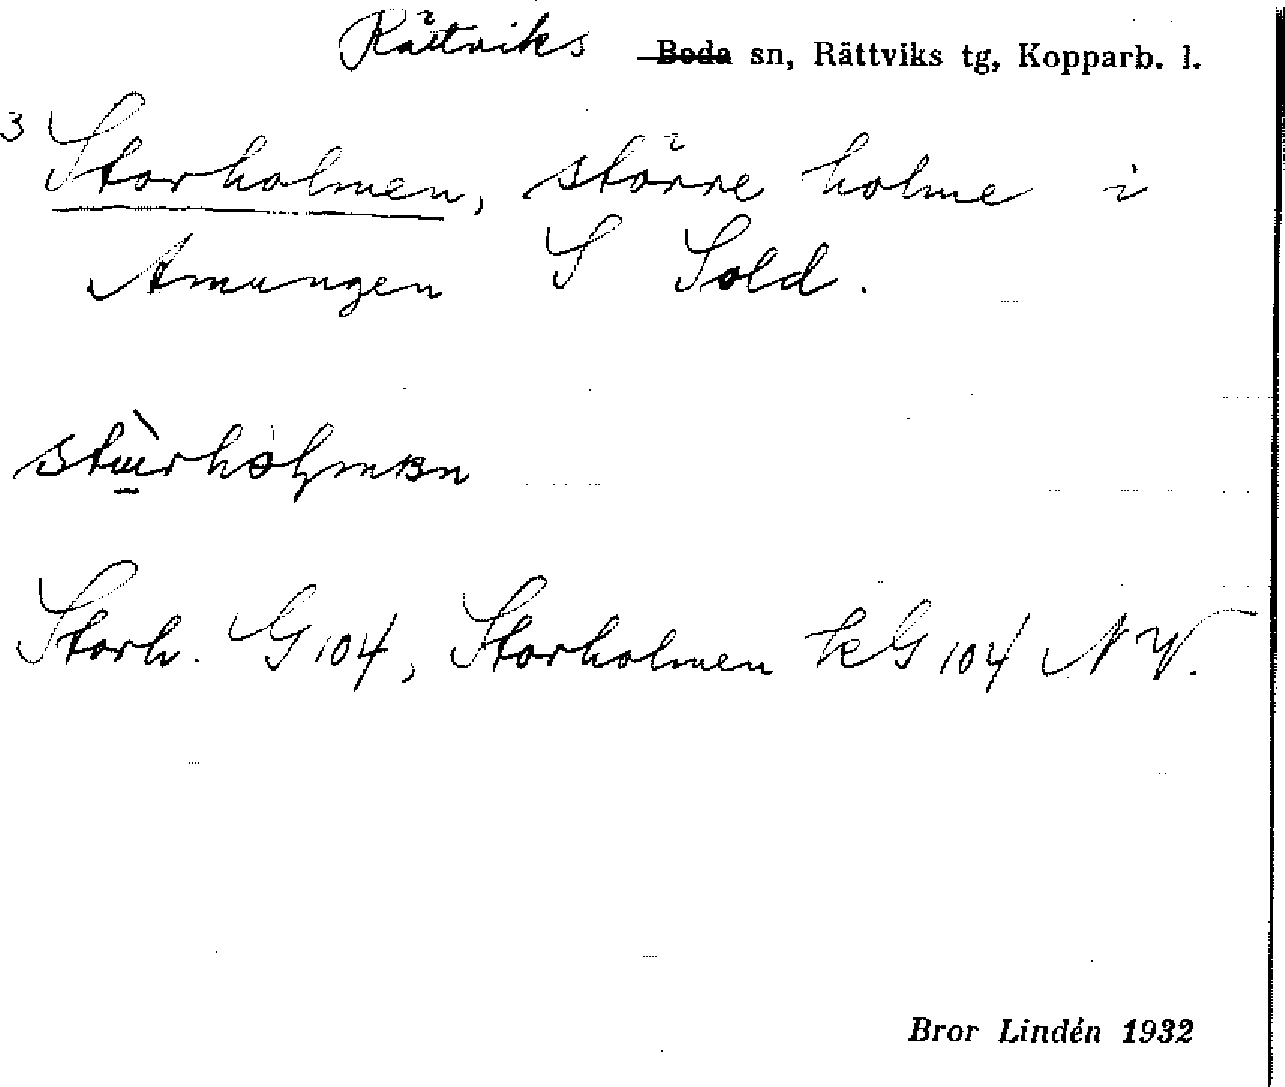 Rättviks Boda sn, Rättviks tg, Kopparb. l.
3 Storholmen, större holme i
Amungen S Sold.
Storh. G 104, Storholmen kG 104 NV.
Bror Lindén 1932